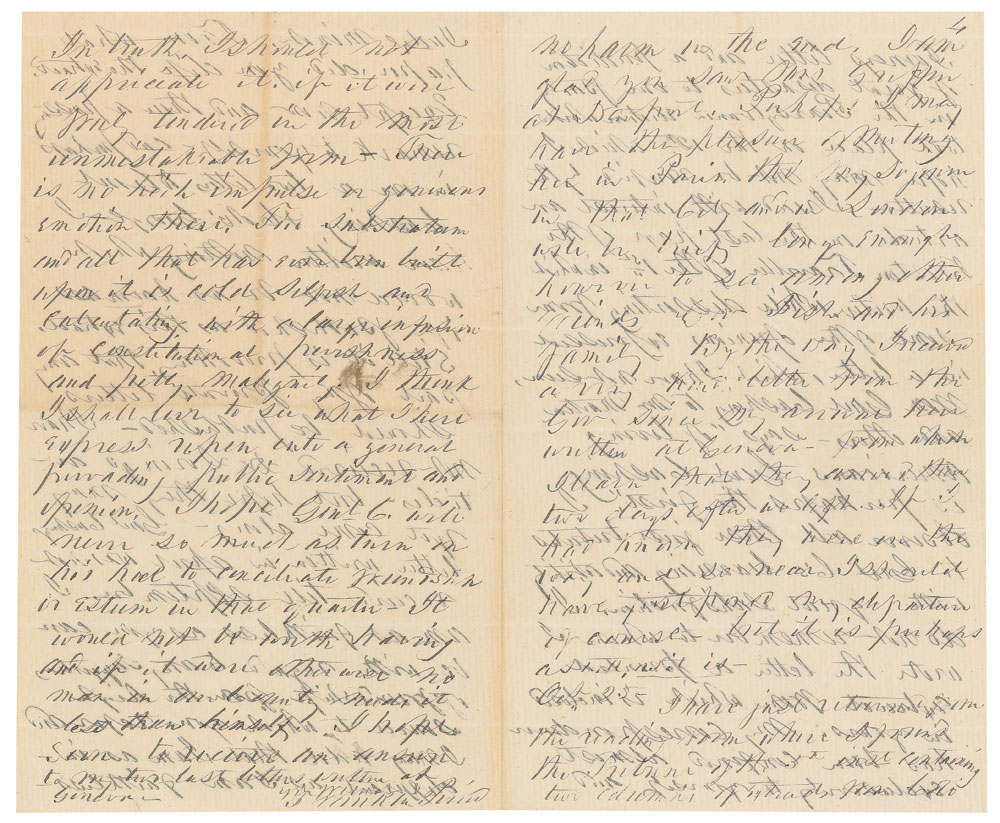 In truth, I should not
appreciate it. if it were
truly tendered in the most
unmistakable form — There
is no rich impulse or generous
emotion there, The substratum
and all that has ever been built
upon it is cold selfish and
calculating with a large infusion
of constitutional peevishness
and petty malignity, I think
I shall live to see what I here
express ripen into a general
pervading public sentiment and
opinion, I hope Genl C. will
never so much as turn on
his heel to conciliate
or esteem in that quarter — It
would not be worth having
and if it were otherwise no
man in want needs it
less than himself. I hope
soon to receive an answer
to my two last letters written at
Geneva —
4
no harm in the end, I am
glad you saw Miss
at Newport — Perhaps I may
have the pleasure of meeting
her in Paris tho' my sojourn
in that City and in London
will be brief, long enough
however to see among other
friends Fish and his
family By the way I received
a very kind letter from the
Gov. since my arrival here
written at Geneva — from which
I learn that they arrived there
two days after we left. If I
had known they were on the
way and so near I should
have postponed my departure
of course, but it is perhaps
as well as it is —
Oct. 25 I have just returned from
the reading room where I found
the Tribune of the inst containing
two columns